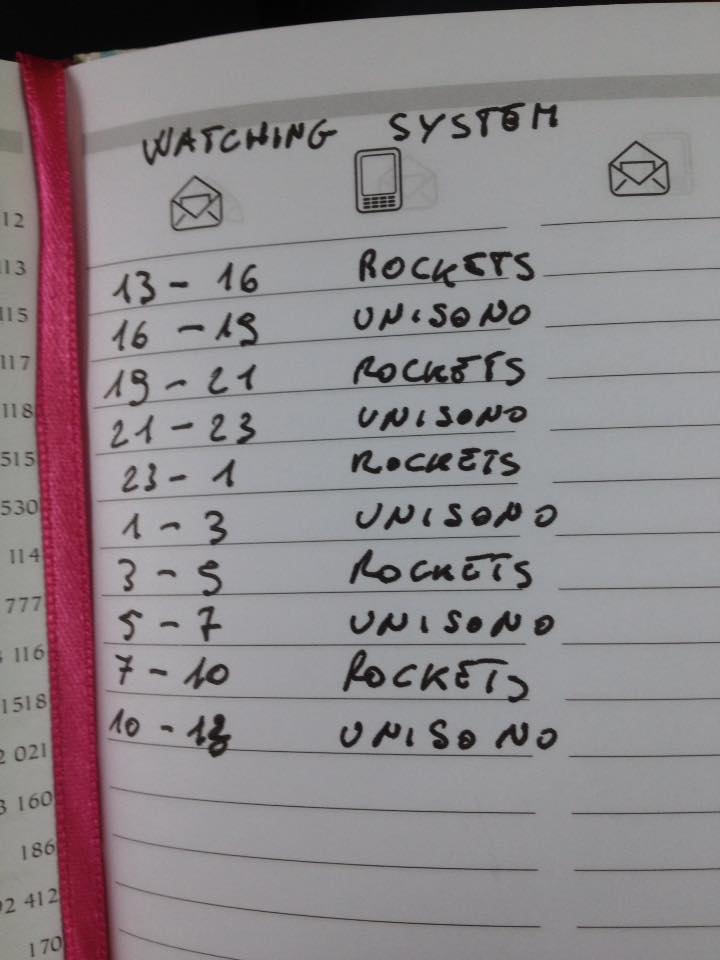 WATCHING SYSTEM
13 - 16 ROCKETS
16 - 19 UNISONO
19 - 21 ROCKETS
21 - 23 UNISONO
23 - 1 ROCKETS
1 - 3 UNISONO
3 - 5 ROCKETS
5 - 7 UNISONO
7 - 10 ROCKETS
10 - 13 UNISONO
12
113
115
117
118
515
530
114
777
116
1518
2 021
3 160
186
92 412
170